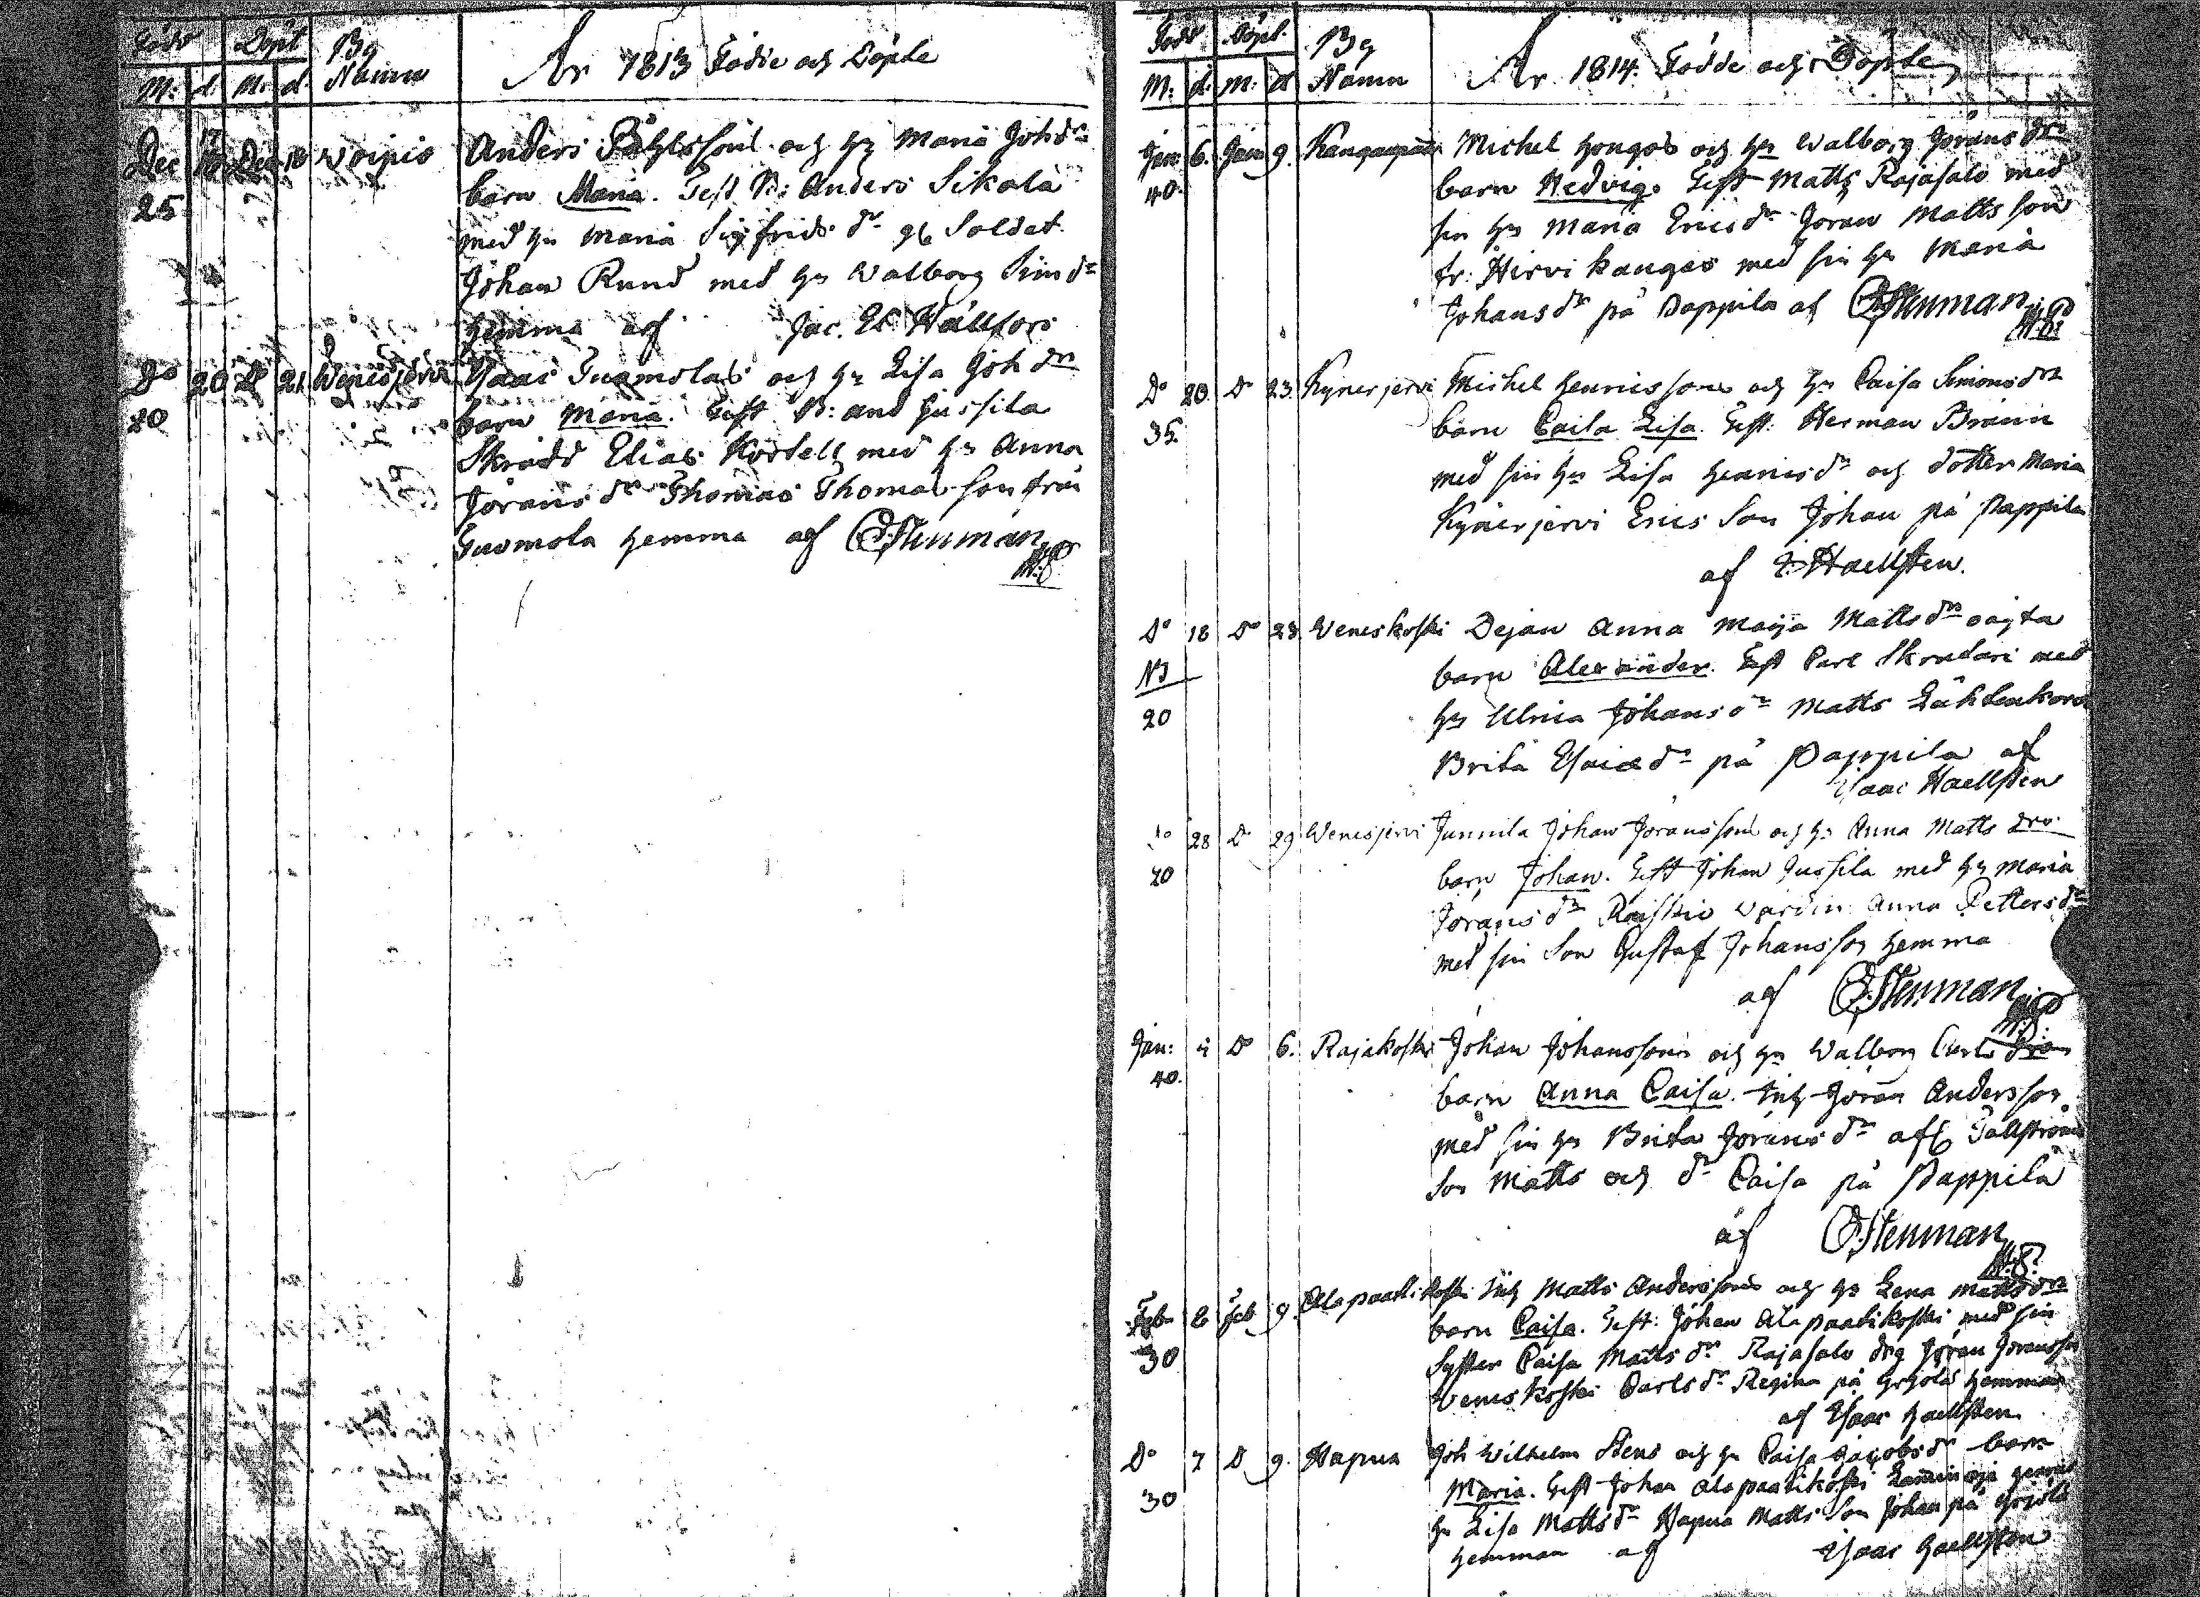 Född Döpt By
M: d. M: d. Namn
År 1813 Födde och Döpte
Dec Dec 18 Woipio Anders Påhlsson och hu Maria Joh dr
25 barn Maria. Test B: Anders Sikala
med hu Maria Sigfrids dr gl Soldat
Johan Rund med hu Walborg Sim dr
hemma af Jac. El Hällfors
Do 20 Do 21 Isaac Tuomolas och hu Lisa Joh dr
20 barn Maria. Test B: And Jussila
Skrädd Elias Kortell med hu Anna
Jörans dr Thomas Thomasson från
Tuomola hemma af E. Stenman
Född Döpt. By
M: d. M: d Namn
År 1814. Födde och Döpte
Jan 6. Jan 9. Kangaspää Michel Hongos och hu Walborg Jörans dr
40. barn Hedvig. Test Matts Rajasalo med
sin hu Maria Erics dr Jöran Matts son
fr: Hirvikangas med sin hu Maria
Johans dr på Pappila af E. Stenman
Do 20. Do 23. Kynerjervi Michel Henricsson och hu Caisa Simons dr
35. barn Caisa Lisa. Test: Herman Brunn
med sin hu Lisa Henrics dr och dotter Maria
Kynerjervi Erics Son Johan på Pappila
af I Haellsten.
Do 18 Do 23 Veneskoski Pejan Anna Maija Matts dr oägta
NB barn Alexander. Test Carl Skrudari med
20 hu Ulrica Johans dr Matts Lähteenkorva
Brita Esaias dr på Pappila af
Isaac Haellsten
Do 28 D 29 Wenesjervi Junnila Johan Jöransson och hu Anna Matts dr
20 barn Johan. Test Johan Jussila med hu Maria
Jörans dr Raiskio värdin Anna Petters dr
med sin Son Gustaf Johansson hemma
af E. Stenman
Jan: 4 D 6. Rajakoski Johan Johansson och hu Walborg Carls dr
40. barn Anna Caisa. Inh Jöran Andersson
med sin hu Brita Jörans dr Tällström
Son Matts och dr Caisa på Pappila
af E. Stenman
Feb 6 Feb 9. Alapaattikoski Inh Matts Andersson och hu Lena Matts dr
30 barn Caisa. Test: Johan Alapaatikoski med sin
Syster Caisa Matts dr Rajasalo drg Jöran Jöransson
Veneskoski Carls dr Regina på Yrjölä hemman
af Isaac Haellsten
Do 7 D 9. Hapua Joh Wilhelm Stens och hu Caisa Jacobs dr barn
30 Maria. Test Johan Alapaatikoski
hu Lisa Matts dr Hapua Matts Son Johan på Yrjölä
hemman af Isaac Haellsten